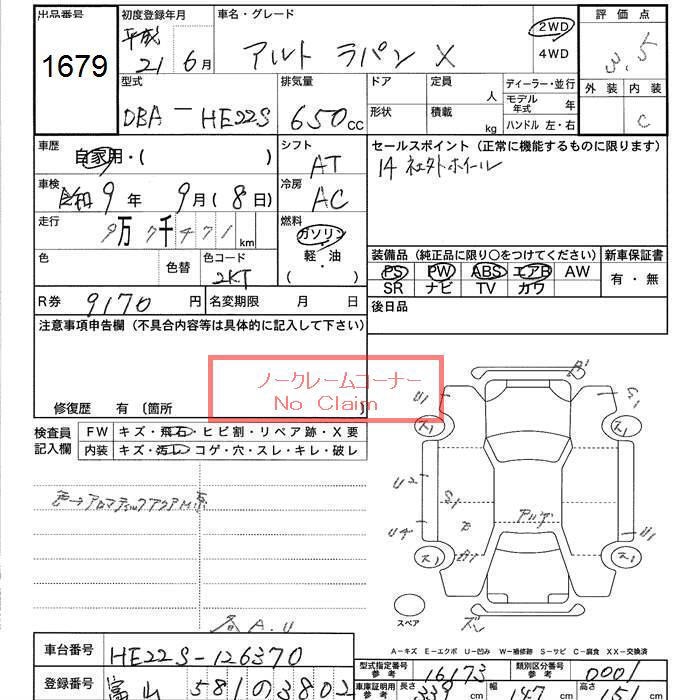 出品番号
1679
初度登録年月
平成
21 6月
車名・グレード
アルト ラパン X
2WD
4WD
評価点
3.5
外装 内装
C
型式
DBA-HE22S
排気量
650cc
ドア
形状
定員
人
積載
kg
ディーラー・並行
モデル年式 年
ハンドル 左・右
車歴
自家用・( )
車検
令和 9年 9月(8日)
走行
9万7千471km
色
色替
色コード
2KT
R券 9170円
名変期限 月 日
シフト
AT
冷房
AC
燃料
ガソリン
軽・油
( )
セールスポイント(正常に機能するものに限ります)
14 社外ホイール
装備品(純正品に限り○をつけてください)
PS PW ABS エアB AW
SR ナビ TV カワ
新車保証書
有・無
後日品
注意事項申告欄(不具合内容等は具体的に記入して下さい)
ノークレームコーナー
No Claim
修復歴 有 (箇所 )
検査員記入欄
FW キズ・飛石・ヒビ割・リペア跡・X要
内装 キズ・汚レ・コゲ・穴・スレ・キレ・破レ
色→アロマティックアクアM系
各A.U
A1
U1
G1
ス1
ス1
U2
G1
U4
U1
ス1
ス1
スペア
A-キズ E-エクボ U-凹み W-補修跡 S-サビ C-腐食 XX-交換済
車台番号 HE22S-126370
登録番号 富山 581 の 3802
型式指定番号 参考 16173
類別区分番号 参考 0001
車庫証明用 参考 長さ 339 cm 幅 147 cm 高さ 151